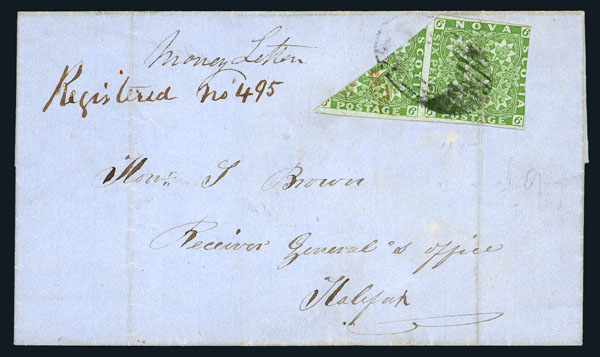 Money Letter
Registered No 495
NOVA
SCOTIA
6 POSTAGE 6
6 POSTAGE 6
Honl. J Brown
Receiver General's office
Halifax